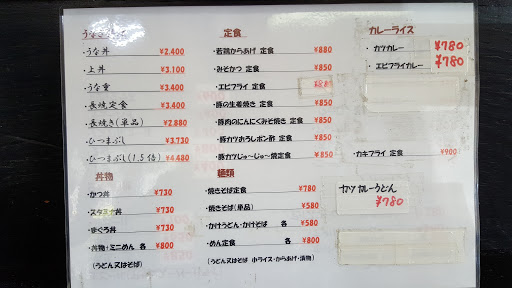 ・うな丼 ¥2,400
・上丼 ¥3,100
・うな重 ¥3,400
・長焼定食 ¥3,400
・長焼き(単品) ¥2,880
・ひつまぶし ¥3,730
・ひつまぶし(1.5倍) ¥4,480
丼物
・かつ丼 ¥730
・スタミナ丼 ¥730
・まぐろ丼 ¥730
・丼物+ミニめん 各 ¥800
(うどん又はそば)
定食
・若鶏からあげ 定食 ¥880
・みそかつ 定食 ¥850
・エビフライ 定食
・豚の生姜焼き 定食 ¥850
・豚肉のにんにくみそ焼き 定食 ¥850
・豚カツおろしポン酢 定食 ¥850
・豚カツじゅ~じゅ~焼定食 ¥850
麺類
・焼きそば定食 ¥780
・焼きそば(単品) ¥580
・かけうどん・かけそば 各 ¥580
・めん定食 各 ¥800
(うどん又はそば 小ライス・からあげ・漬物)
カレーライス
・カツカレー ¥780
・エビフライカレー ¥780
・カキフライ 定食 ¥900
カツカレーうどん
¥780